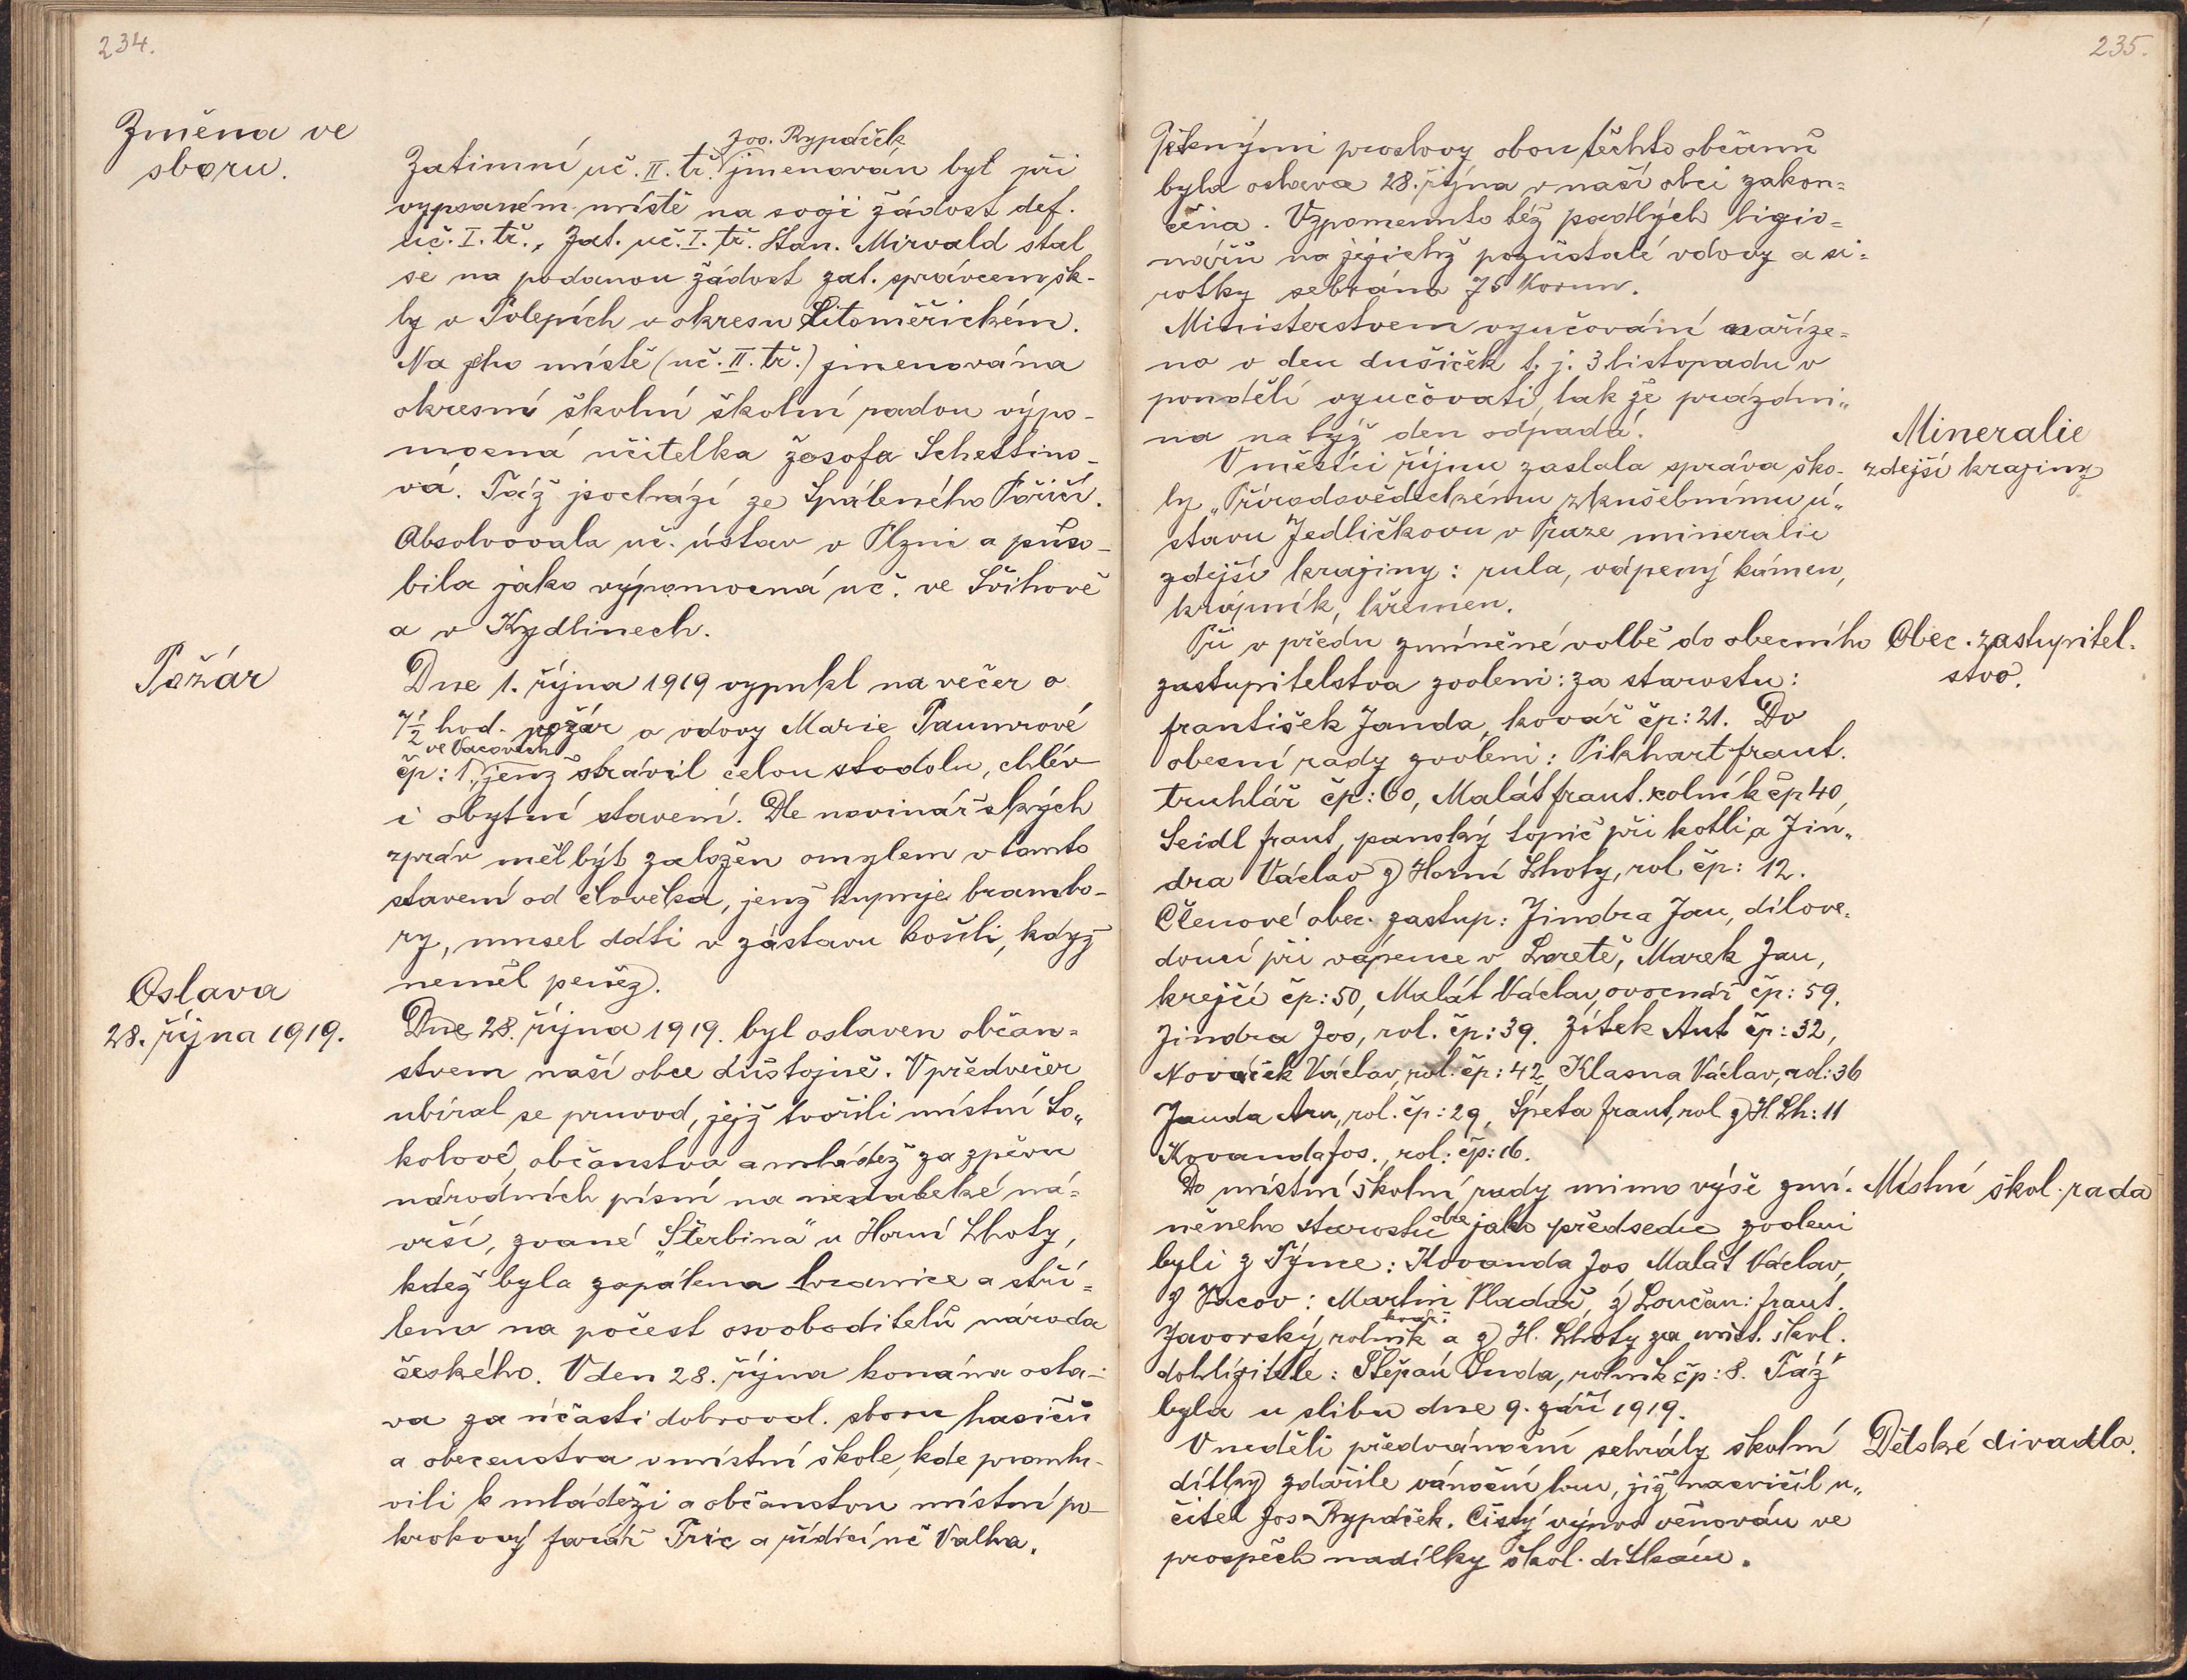 234.
Změna ve
sboru.
Jos. Rypáček
Zatimní uč. II. tř. jmenován byl při
vypsaném místě na svoji žádost def.
uč. I. tř., Zat. uč. I. tř. Stan. Mirvald stal
se na podanou žádost zat. správcem šk-
ly v Polepích v okresu Litoměřickém.
Na jeho místě (uč. II. tř.) jmenována
okresní školní školní radou výpo-
mocná učitelka Žosofa Schettino-
vá. Táž pochází ze Spáleného Poříčí.
Absolvovala uč. ústav v Plzni a půso-
bila jako výpomocná uč. ve Švihově
a v Kydlinech.
Požár
Dne 1. října 1919 vypukl na večer o
7½ hod. požár u vdovy Marie Paumrové
ve Vacovech
čp: 1., jenž strávil celou stodolu, chlév
i obytní stavení. Dle novinářských
zpráv měl být založen omylem v tomto
stavení od člověka, jenž kupuje brambo-
ry, musel dáti v zástavu košili, když
neměl peněz.
Oslava
28. října 1919.
Dne 28. října 1919. byl oslaven občan=
stvem naší obce důstojně. V předvečer
ubíral se pruvod, jejž tvořili místní So„
kolové, občanstvo a mládež za zpěvu
národních písní na nedaleké ná=
vrší, zvané „Štěrbina" u Horní Lhoty,
kdež byla zapálena hranice a stří=
leno na počest osvoboditelů národa
českého. V den 28. října konána osla-
va za účasti dobrovol. sboru hasičů
a obecenstva v místní škole, kde promlu-
vili k mládeži a občanstvu místní po-
krokový farář Fric a řídící uč Valha.
235.
Pěknými proslovy obou těchto občanů
byla oslava 28. října v naší obci zakon=
čena. Vzpomenuto též padlých ligio=
nářů na jejichž pozůstalé vdovy a si=
rotky sebráno 75 Korun.
Ministerstvem vyučování naříze=
no v den dušiček t. j. 3 listopadu v
pondělí vyučovati, tak že prázdni„
na na týž den odpadá.
Mineralie
zdejší krajiny
V měsíci říjnu zaslala správa ško-
ly „Přírodovědeckému zkušebnímu ú„
stavu Jedličkovu v Praze mineralie
zdejší krajiny: rula, vápený kámen,
krápník, křemen.
Obec. zastupitel.
stvo.
Při v předu zmíněné volbě do obecního
zastupitelstva zvoleni: za starostu:
františek Janda, kovář čp: 21. Do
obecní rady zvoleni: Pikhart frant.
truhlář čp: 60, Malát frant. rolník čp 40,
Seidl frant, panský topič při kotli a Jin„
dra Václav z Horní Lhoty, rol. čp: 12.
Členové obec. zastup: Jindra Jan, dílove-
doucí při vápence v Loretě, Marek Jan,
krejčí čp: 50, Malát Václav, ovocnář čp: 59.
Jindra Jos, rol. čp: 39. Zítek Ant čp: 32,
Nováček Václav, rol. čp: 42, Klasna Václav, rol: 36
Janda Ant, rol. čp: 29, Špeta frant, rol z H. Lh: 11
Kovanda Jos., rol: čp: 16.
Místní škol. rada
Do místní školní rady mimo výše zmí-
něneho starostu obce jako předsedu zvoleni
byli z Týnce: Kovanda Jos Malát Václav,
z Vacov: Martin Vladař, z Loučan: frant.
Javorský, rolník a z H. Lhoty za míst. škol.
dohlížitele: Štěpán Duda, rolník čp: 8. Táž
byla u slibu dne 9. září 1919.
Dětské divadlo.
V neděli předvánoční sehrály školní
dítky zdařile vánoční hru, již nacvičil u„
čitel Jos Rypáček. Čistý výnos věnován ve
prospěch nadílky škol. dítkám.